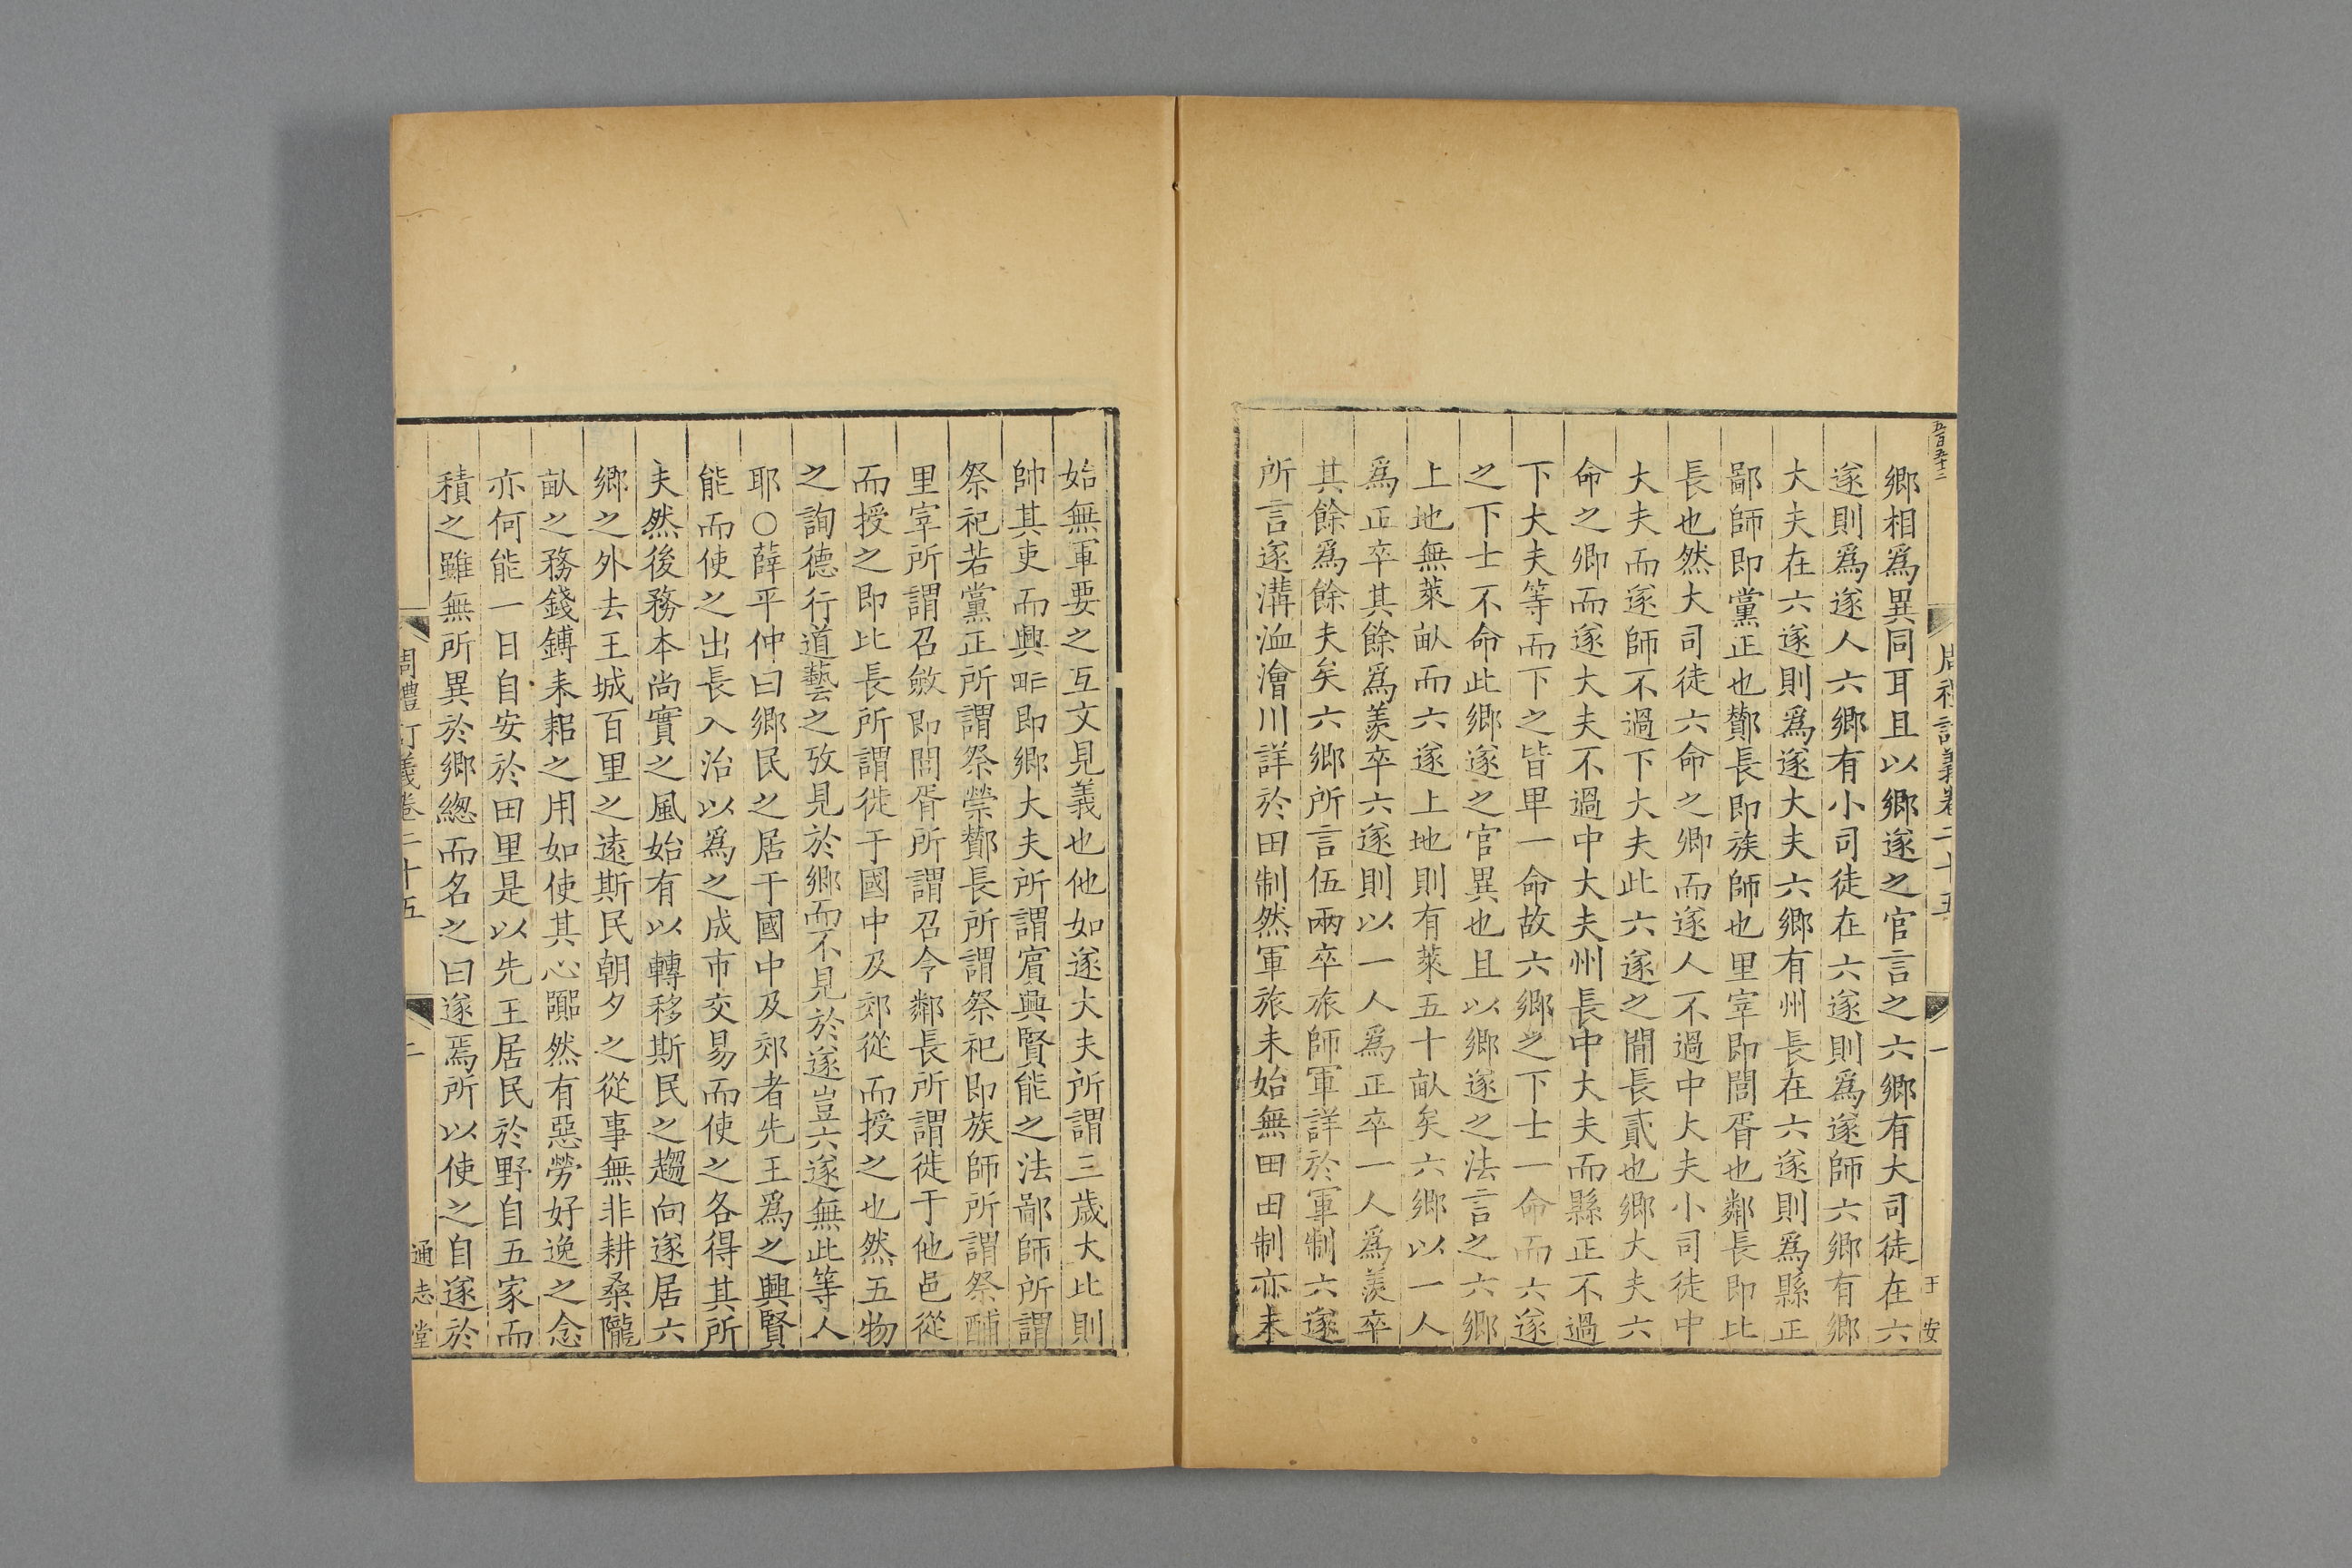 五百五十三
周禮訂義卷二十五
一
王安
鄉相爲異同耳且以鄉遂之官言之六鄉有大司徒在六
遂則爲遂人六鄉有小司徒在六遂則爲遂師六鄉有鄉
大夫在六遂則爲遂大夫六鄉有州長在六遂則爲縣正
鄙師即黨正也酇長即族師也里宰即閭胥也鄰長即比
長也然大司徒六命之卿而遂人不過中大夫小司徒中
大夫而遂師不過下大夫此六遂之間長貳也鄉大夫六
命之卿而遂大夫不過中大夫州長中大夫而縣正不過
下大夫等而下之皆卑一命故六鄉之下士一命而六遂
之下士不命此鄉遂之官異也且以鄉遂之法言之六鄉
上地無萊畝而六遂上地則有萊五十畝矣六鄉以一人
爲正卒其餘爲羨卒六遂則以一人爲正卒一人爲羨卒
其餘爲餘夫矣六鄉所言伍兩卒旅師軍詳於軍制六遂
所言遂溝洫澮川詳於田制然軍旅未始無田田制亦未
始無軍要之互文見義也他如遂大夫所謂三歲大比則
帥其吏而興甿即鄉大夫所謂賓興賢能之法鄙師所謂
祭祀若黨正所謂祭禜酇長所謂祭祀即族師所謂祭酺
里宰所謂召斂即閭胥所謂召令鄰長所謂徙于他邑從
而授之即比長所謂徙于國中及郊從而授之也然五物
之詢德行道藝之攷見於鄉而不見於遂豈六遂無此等人
耶○薛平仲曰鄉民之居于國中及郊者先王爲之興賢
能而使之出長入治以爲之成市交易而使之各得其所
夫然後務本尚實之風始有以轉移斯民之趨向遂居六
鄉之外去王城百里之遠斯民朝夕之從事無非耕桑隴
畝之務錢鎛耒耜之用如使其心嚻然有惡勞好逸之念
亦何能一日自安於田里是以先王居民於野自五家而
積之雖無所異於鄉總而名之曰遂焉所以使之自遂於
周禮訂義卷二十五
二
通志堂